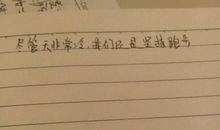 尽管天非常冷,我们还是坚持跑步